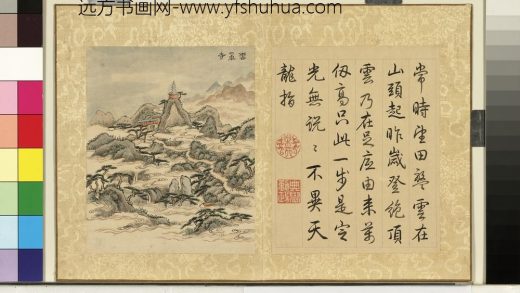 远方书画网-www.yfshuhua.com
雲罩寺
常時望田盤雲在
山頭起昨歲登絶頂
雲乃在足底由来萬
仞高只此一步是定
光無説〻不異天
龍指